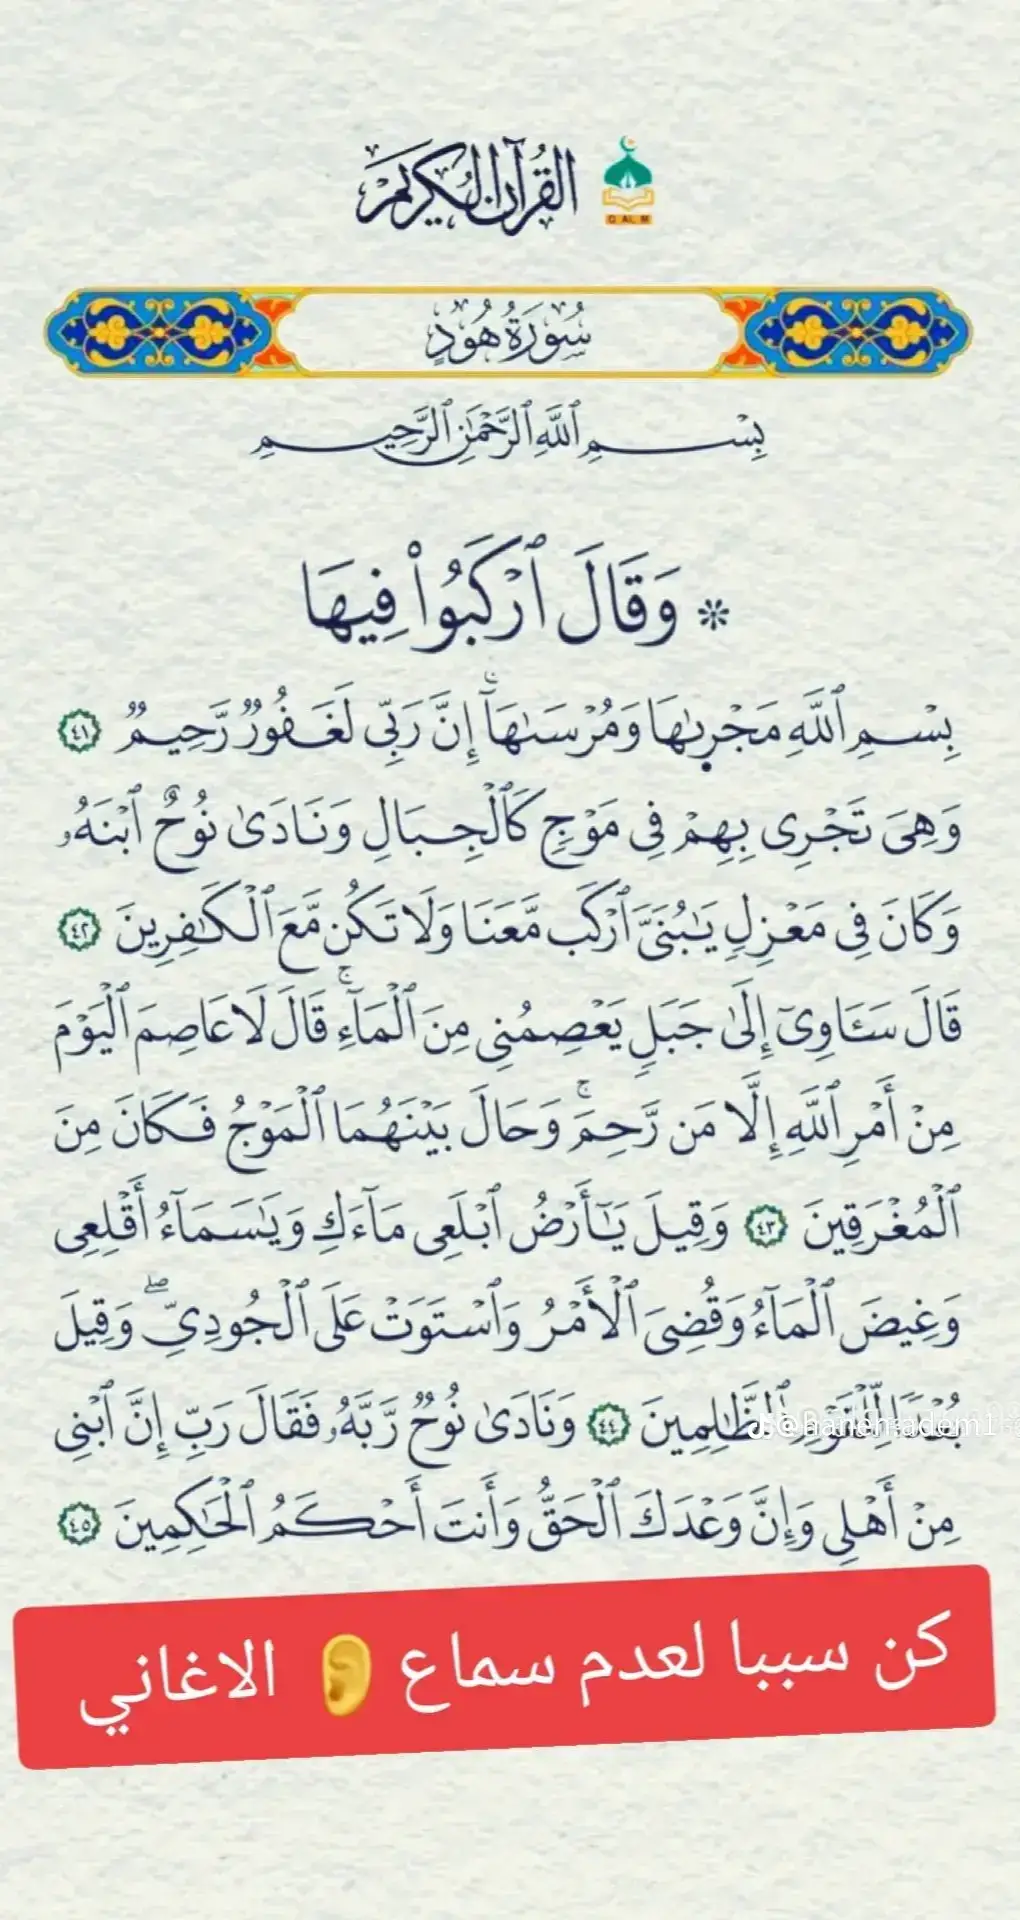 القُرآن الكَرِيم
Q ALM
سُورَةُ هُودٍ
بِسْمِ ٱللَّهِ ٱلرَّحْمَٰنِ ٱلرَّحِيمِ
۞ وَقَالَ ٱرْكَبُوا۟ فِيهَا
بِسْمِ ٱللَّهِ مَجْر۪ىٰهَا وَمُرْسَىٰهَآ ۚ إِنَّ رَبِّى لَغَفُورٌ رَّحِيمٌ ٤١
وَهِىَ تَجْرِى بِهِمْ فِى مَوْجٍ كَٱلْجِبَالِ وَنَادَىٰ نُوحٌ ٱبْنَهُۥ
وَكَانَ فِى مَعْزِلٍ يَٰبُنَىَّ ٱرْكَب مَّعَنَا وَلَا تَكُن مَّعَ ٱلْكَٰفِرِينَ ٤٢
قَالَ سَـَٔاوِىٓ إِلَىٰ جَبَلٍ يَعْصِمُنِى مِنَ ٱلْمَآءِ ۚ قَالَ لَا عَاصِمَ ٱلْيَوْمَ
مِنْ أَمْرِ ٱللَّهِ إِلَّا مَن رَّحِمَ ۚ وَحَالَ بَيْنَهُمَا ٱلْمَوْجُ فَكَانَ مِنَ
ٱلْمُغْرَقِينَ ٤٣ وَقِيلَ يَٰٓأَرْضُ ٱبْلَعِى مَآءَكِ وَيَٰسَمَآءُ أَقْلِعِى
وَغِيضَ ٱلْمَآءُ وَقُضِىَ ٱلْأَمْرُ وَٱسْتَوَتْ عَلَى ٱلْجُودِىِّ ۖ وَقِيلَ
بُعْدًا لِّلْقَوْمِ ٱلظَّٰلِمِينَ ٤٤ وَنَادَىٰ نُوحٌ رَّبَّهُۥ فَقَالَ رَبِّ إِنَّ ٱبْنِى
مِنْ أَهْلِى وَإِنَّ وَعْدَكَ ٱلْحَقُّ وَأَنتَ أَحْكَمُ ٱلْحَٰكِمِينَ ٤٥
كن سببا لعدم سماع 👂 الاغاني